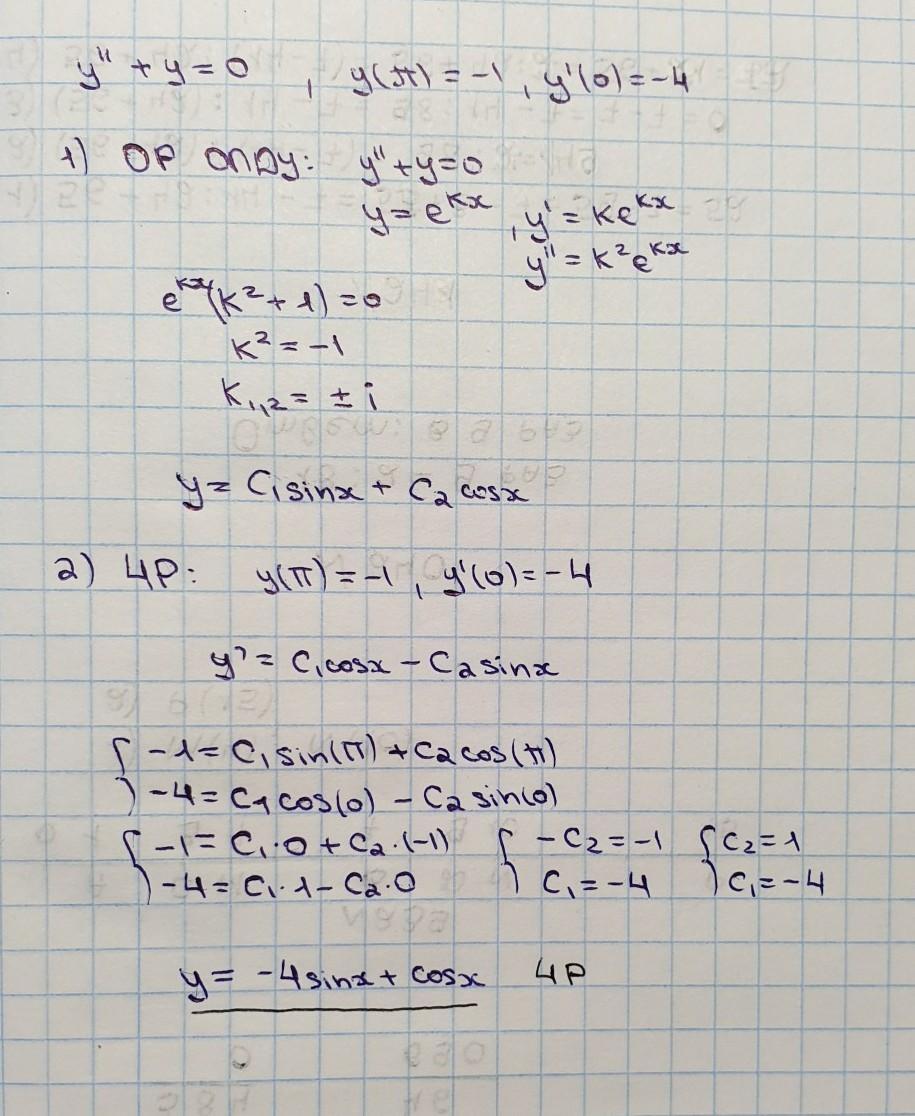 y'' + y = 0 , y(π) = -1 , y'(0) = -4
1) ОР ОЛДУ: y'' + y = 0
y = e^{kx} , y' = ke^{kx}
y'' = k²e^{kx}
e^{kx}(k² + 1) = 0
k² = -1
k₁,₂ = ± i
y = C₁sinx + C₂cosx
2) ЧР: y(π) = -1 , y'(0) = -4
y' = C₁cosx - C₂sinx
{ -1 = C₁sin(π) + C₂cos(π)
-4 = C₁cos(0) - C₂sin(0)
{ -1 = C₁·0 + C₂·(-1) { -C₂ = -1 { C₂ = 1
-4 = C₁·1 - C₂·0 C₁ = -4 C₁ = -4
y = -4sinx + cosx ЧР